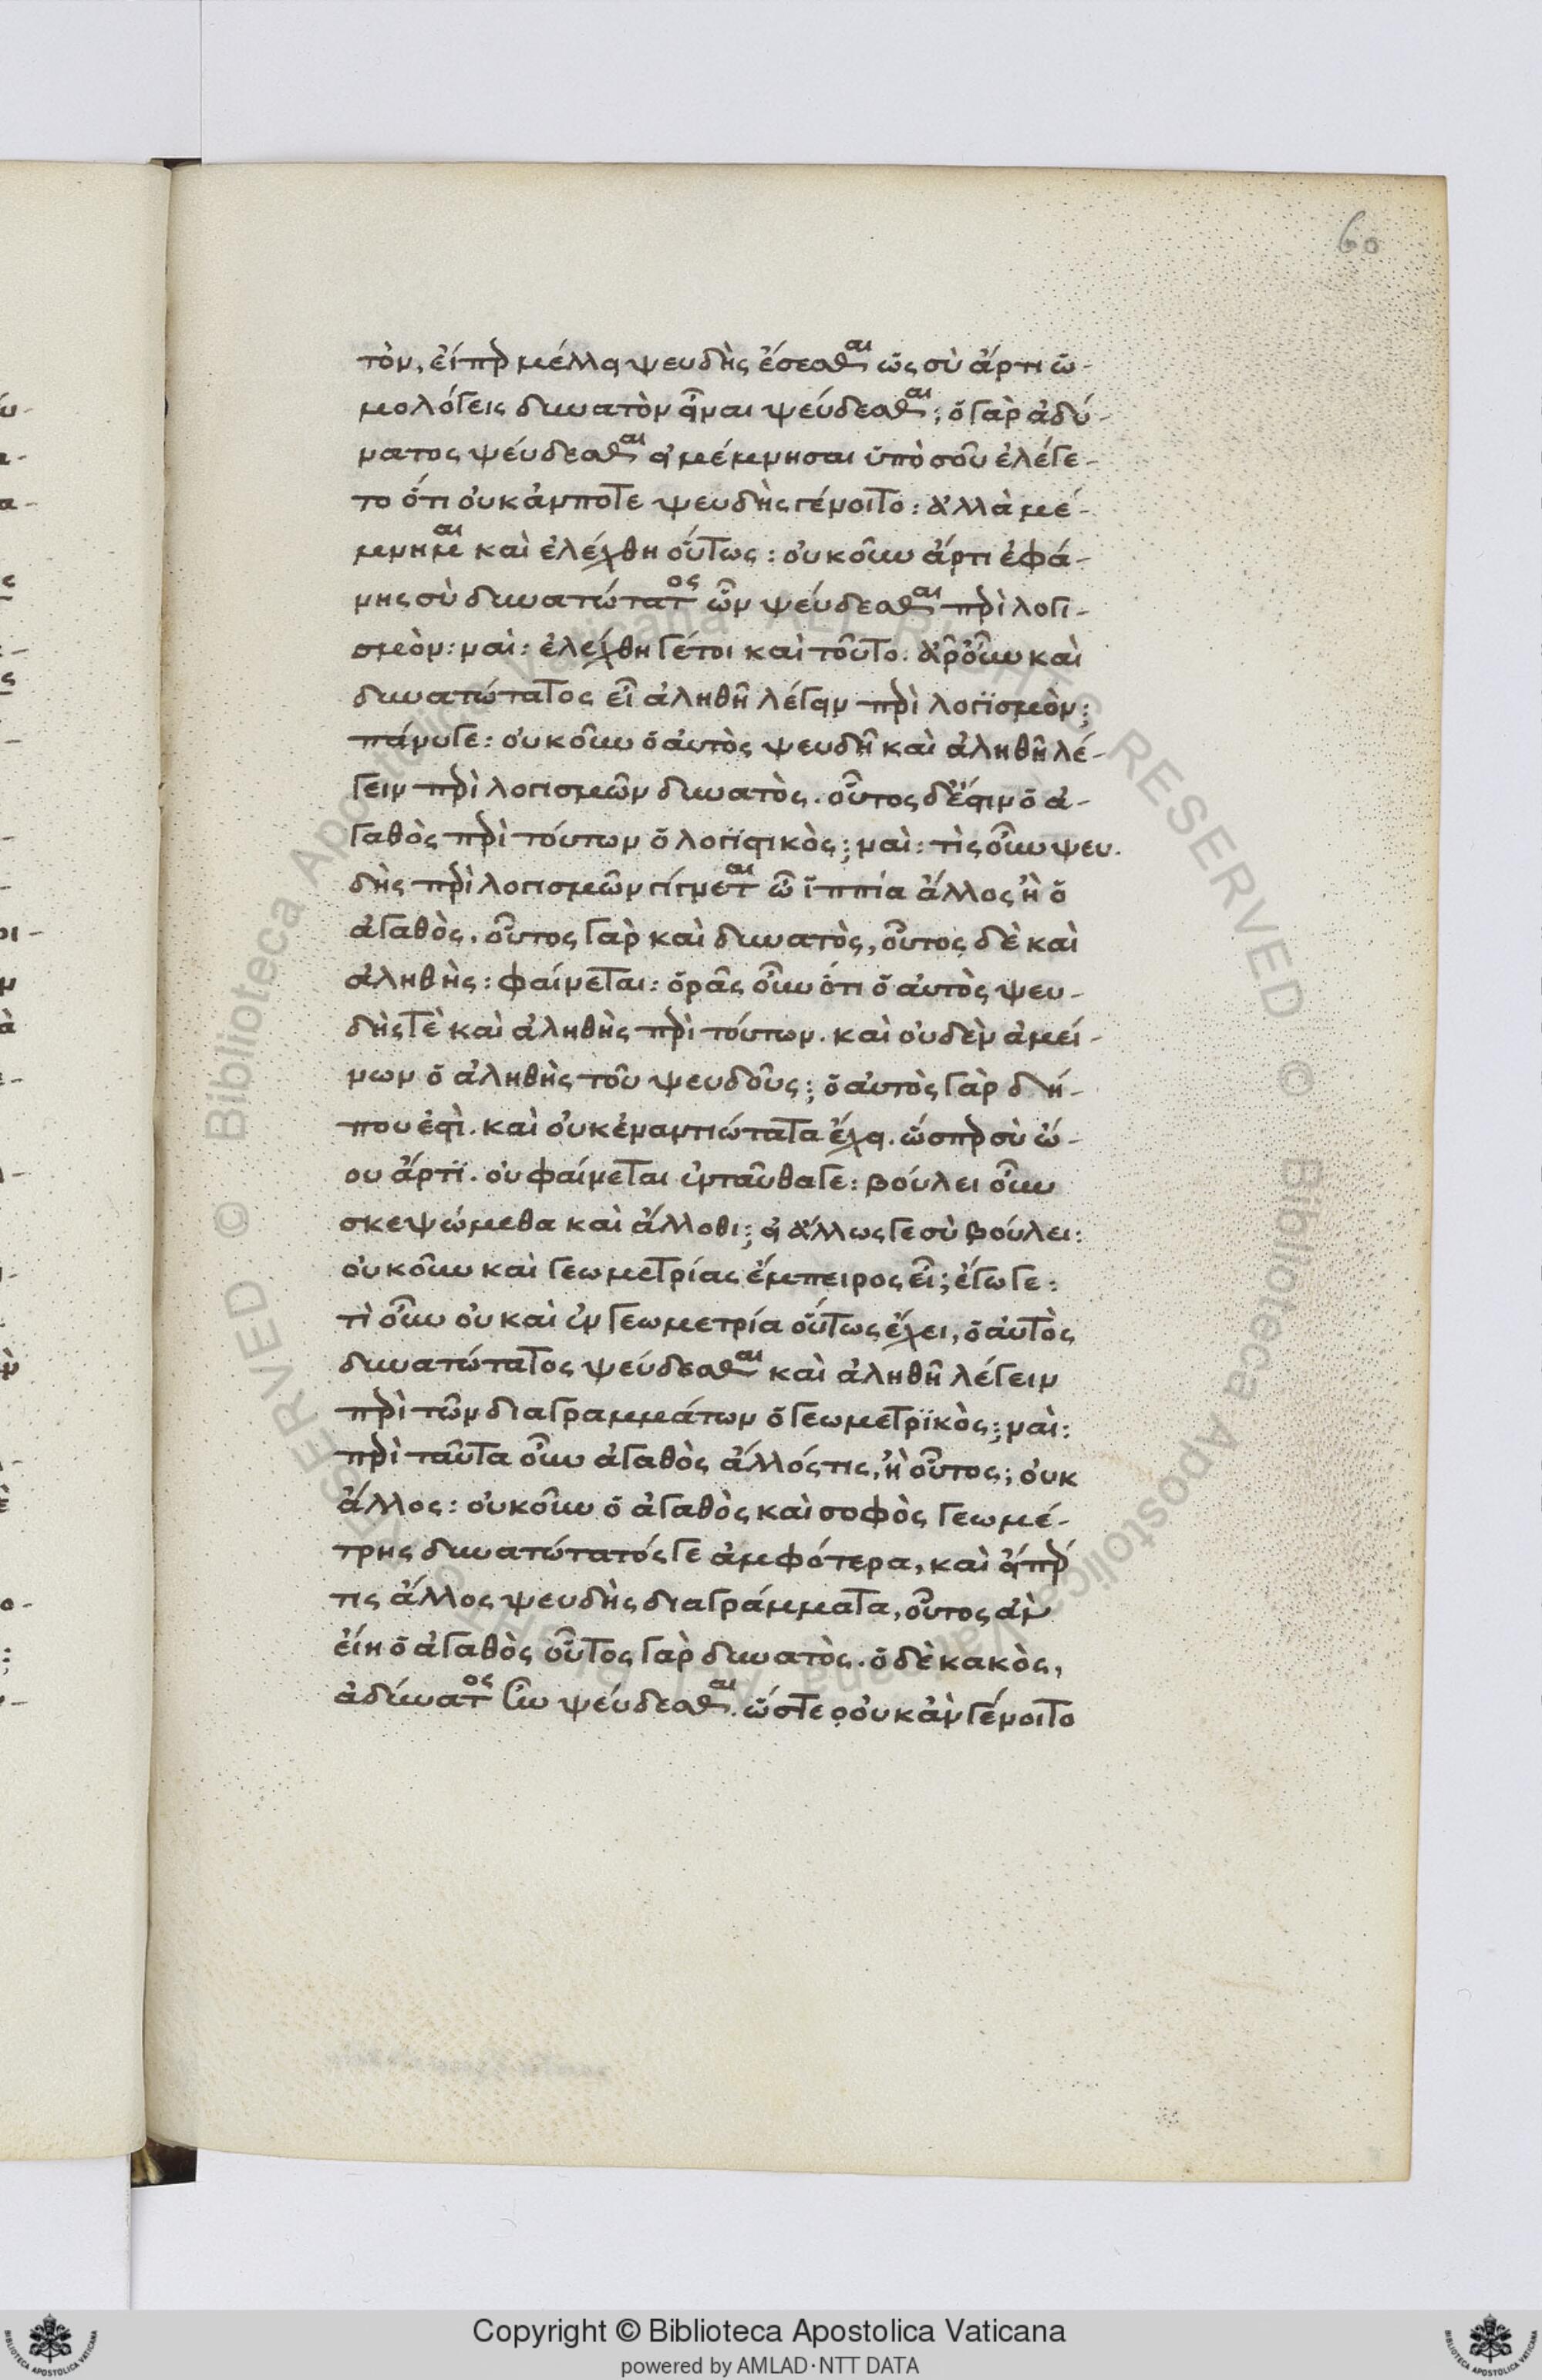 60
τὸν, εἴπερ μέλλει ψευδὴς ἔσεσθαι ὡς σὺ ἄρτι ὡ-
μολόγεις δυνατὸν εἶναι ψεύδεσθαι; ὁ γὰρ ἀδύ-
νατος ψεύδεσθαι εἰ μέμνησαι ὑπὸ σοῦ ἐλέγε-
το ὅτι οὐκ ἄν ποτε ψευδὴς γένοιτο: ἀλλὰ μέ-
μνημαι καὶ ἐλέχθη οὕτως: οὐκοῦν ἄρτι ἐφά-
νης σὺ δυνατώτατος ὢν ψεύδεσθαι περὶ λογι-
σμὸν: ναὶ: ἐλέχθη γέτοι καὶ τοῦτο. ἆρ οὖν καὶ
δυνατώτατος εἶ ἀληθῆ λέγειν περὶ λογϊσμὸν;
πάνυγε: οὐκοῦν ὁ αὐτὸς ψευδῆ καὶ ἀληθῆ λέ-
γειν περὶ λογισμῶν δυνατὸς. οὗτος δ' ἔστιν ὁ ἀ-
γαθὸς περὶ τούτων ὁ λογϊστικὸς; ναὶ: τὶς οὖν ψευ-
δὴς περὶ λογισμῶν γίγνεται ὦ ἱππία ἄλλος ἢ ὁ
ἀγαθὸς. οὗτος γὰρ καὶ δυνατὸς, οὗτος δὲ καὶ
ἀληθὴς: φαίνεται: ὁρᾶς οὖν ὅτι ὁ αὐτὸς ψευ-
δής τὲ καὶ ἀληθὴς περὶ τούτων. καὶ οὐδὲν ἀμεί-
νων ὁ ἀληθὴς τοῦ ψευδοῦς; ὁ αὐτὸς γὰρ δή-
που ἐστὶ. καὶ οὐκ ἐναντιώτατα ἔχει. ὥσπερ σὺ ὤ-
ου ἄρτϊ. οὐ φαίνεται ἐνταῦθαγε: βούλει οὖν
σκεψώμεθα καὶ ἄλλοθι; εἰ ἄλλως γε σὺ βούλει:
οὐκοῦν καὶ γεωμετρίας ἔμπειρος εἶ; ἔγωγε:
τὶ οὖν οὐ καὶ ἐν γεωμετρία οὕτως ἔχει, ὁ αὐτὸς
δυνατώτατος ψεύδεσθαι καὶ ἀληθῆ λέγειν
περὶ τῶν διαγραμμάτων ὁ γεωμετρϊκὸς; ναὶ:
περὶ ταῦτα οὖν ἀγαθὸς ἄλλός τις, ἢ οὗτος; οὐκ
ἄλλος: οὐκοῦν ὁ ἀγαθὸς καὶ σοφὸς γεωμέ-
τρης δυνατώτατός γε ἀμφότερα, καὶ εἴπερ
τις ἄλλος ψευδὴς διαγράμματα, οὗτος ἂν
εἴη ὁ ἀγαθὸς οὗτος γὰρ δυνατὸς. ὁ δὲ κακὸς,
ἀδύνατος ἦν ψεύδεσθαι. ὥστε οὐκ ἂν γένοιτο
Copyright © Biblioteca Apostolica Vaticana
powered by AMLAD·NTT DATA